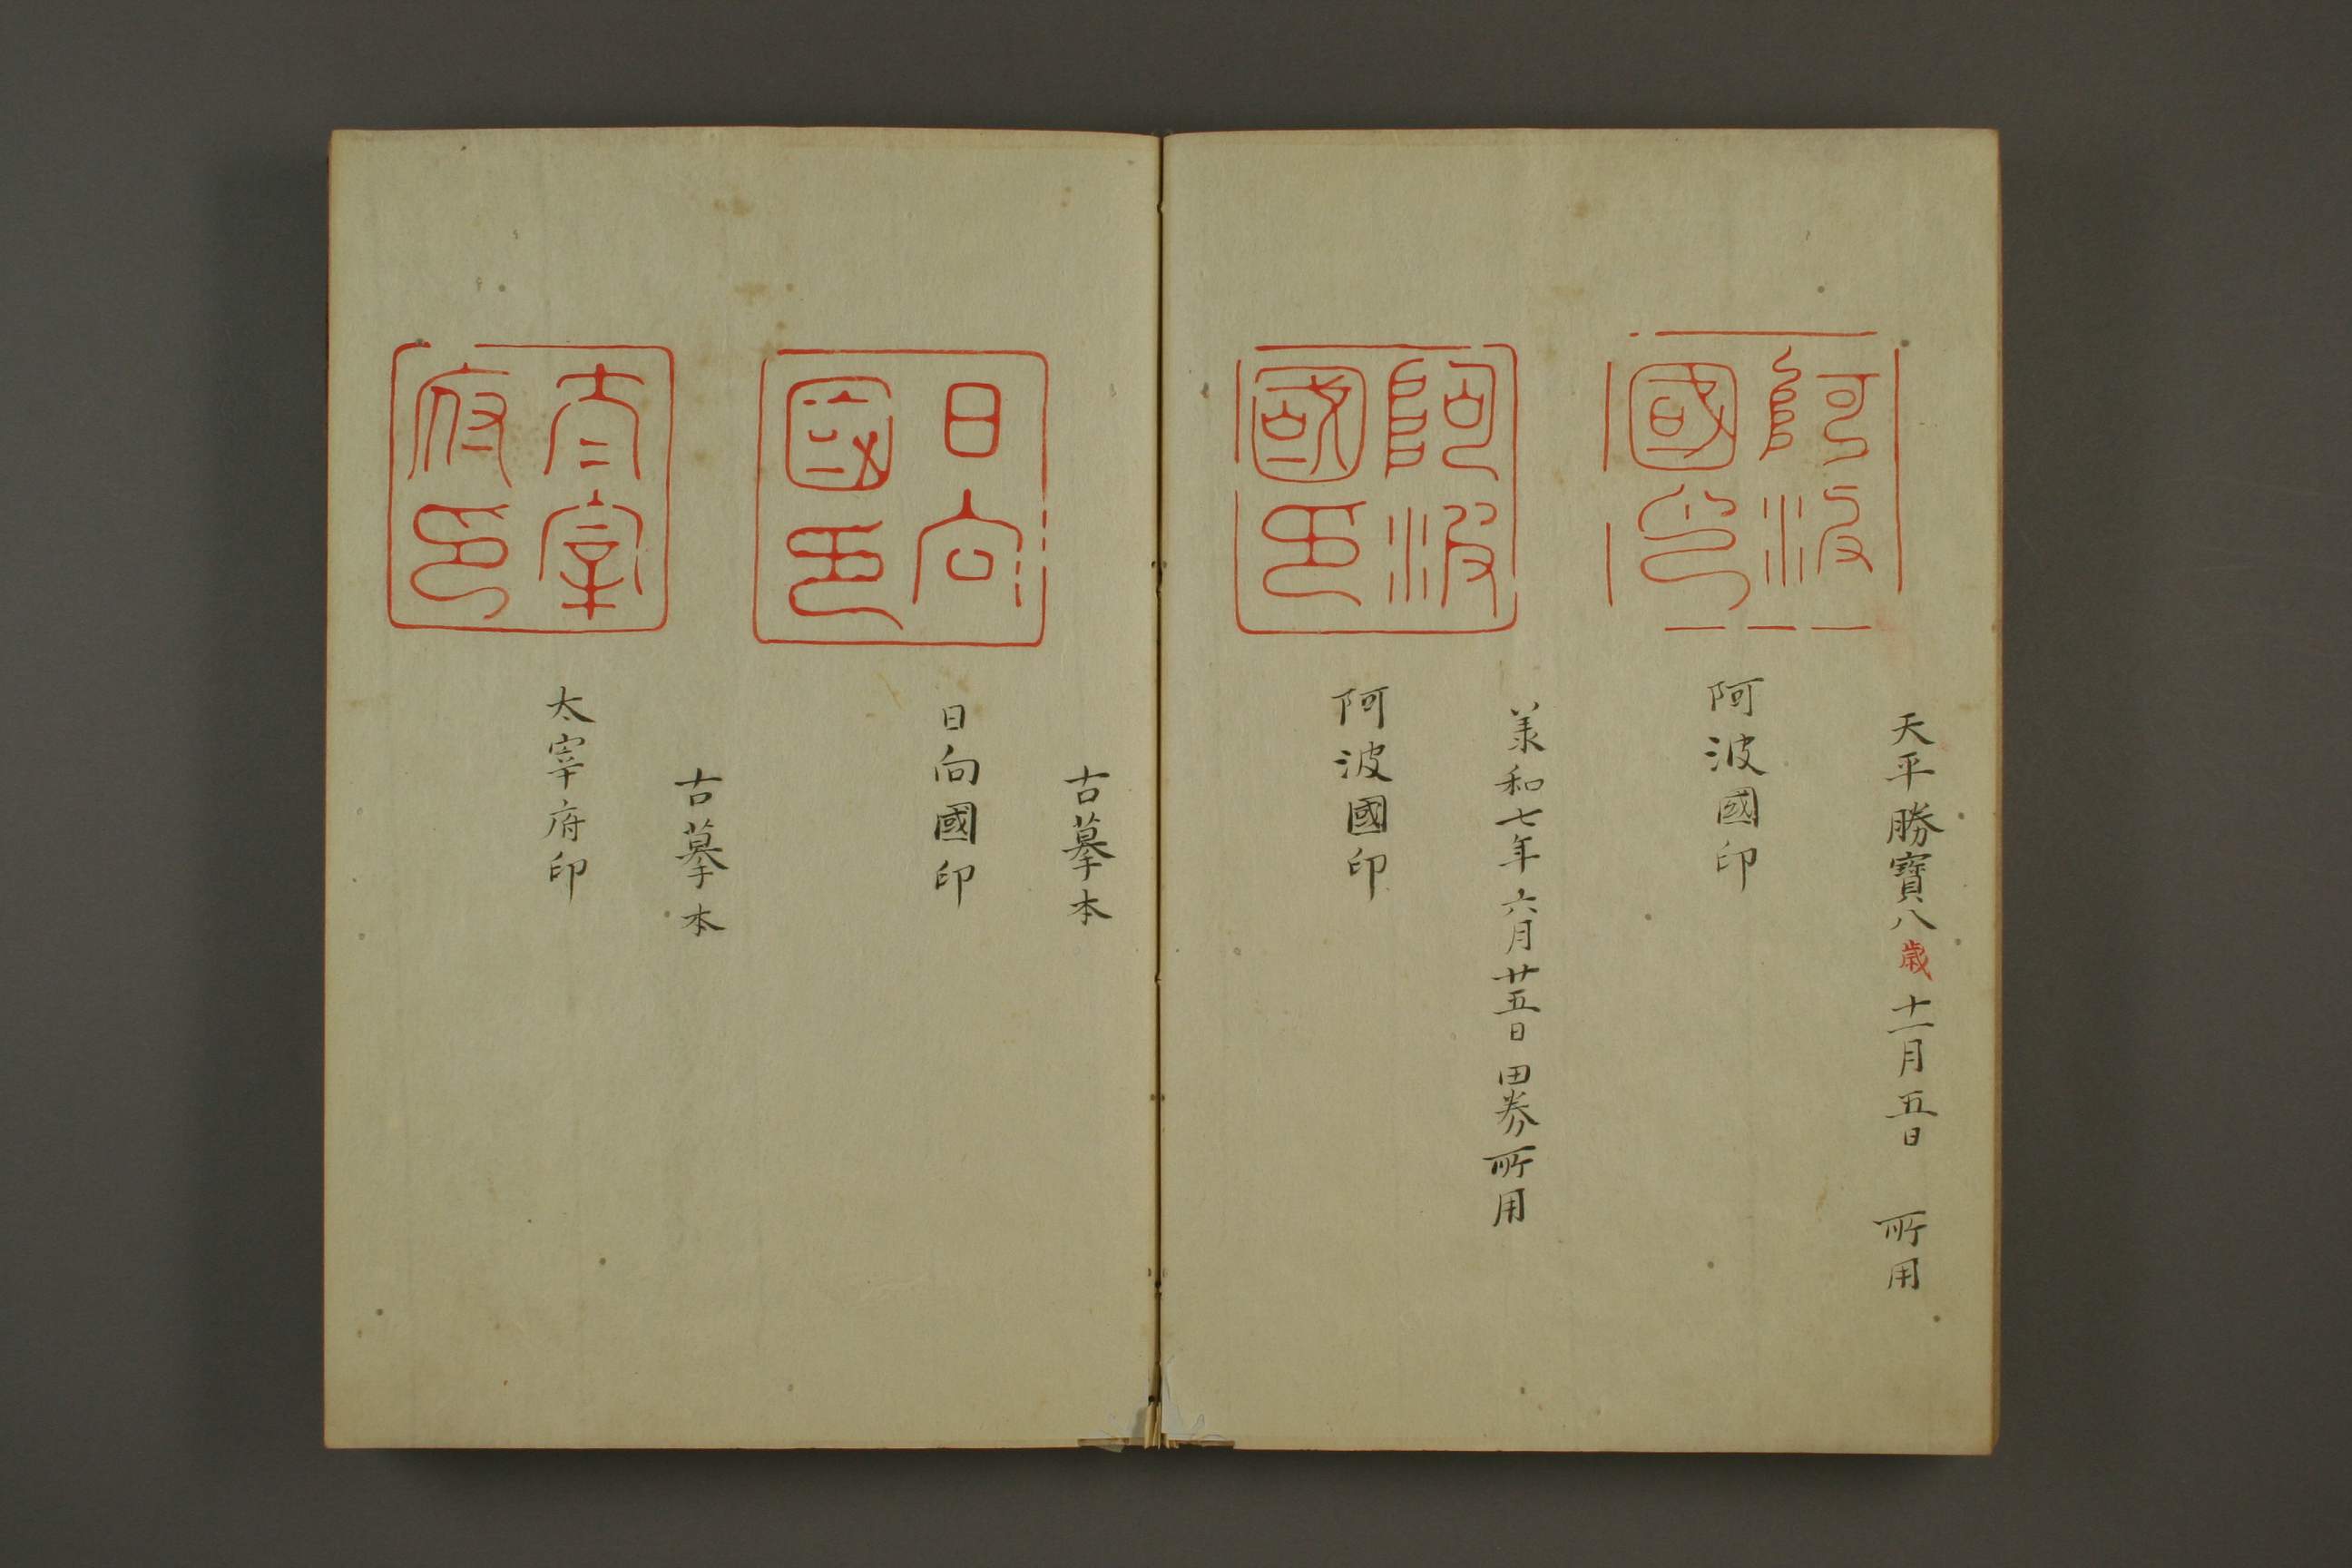 天平勝寶八歳十一月五日　所用
阿波
國印
阿波國印
承和七年六月廿五日田券所用
阿波
國印
阿波國印
古摹本
日向
國印
日向國印
古摹本
太宰
府印
太宰府印